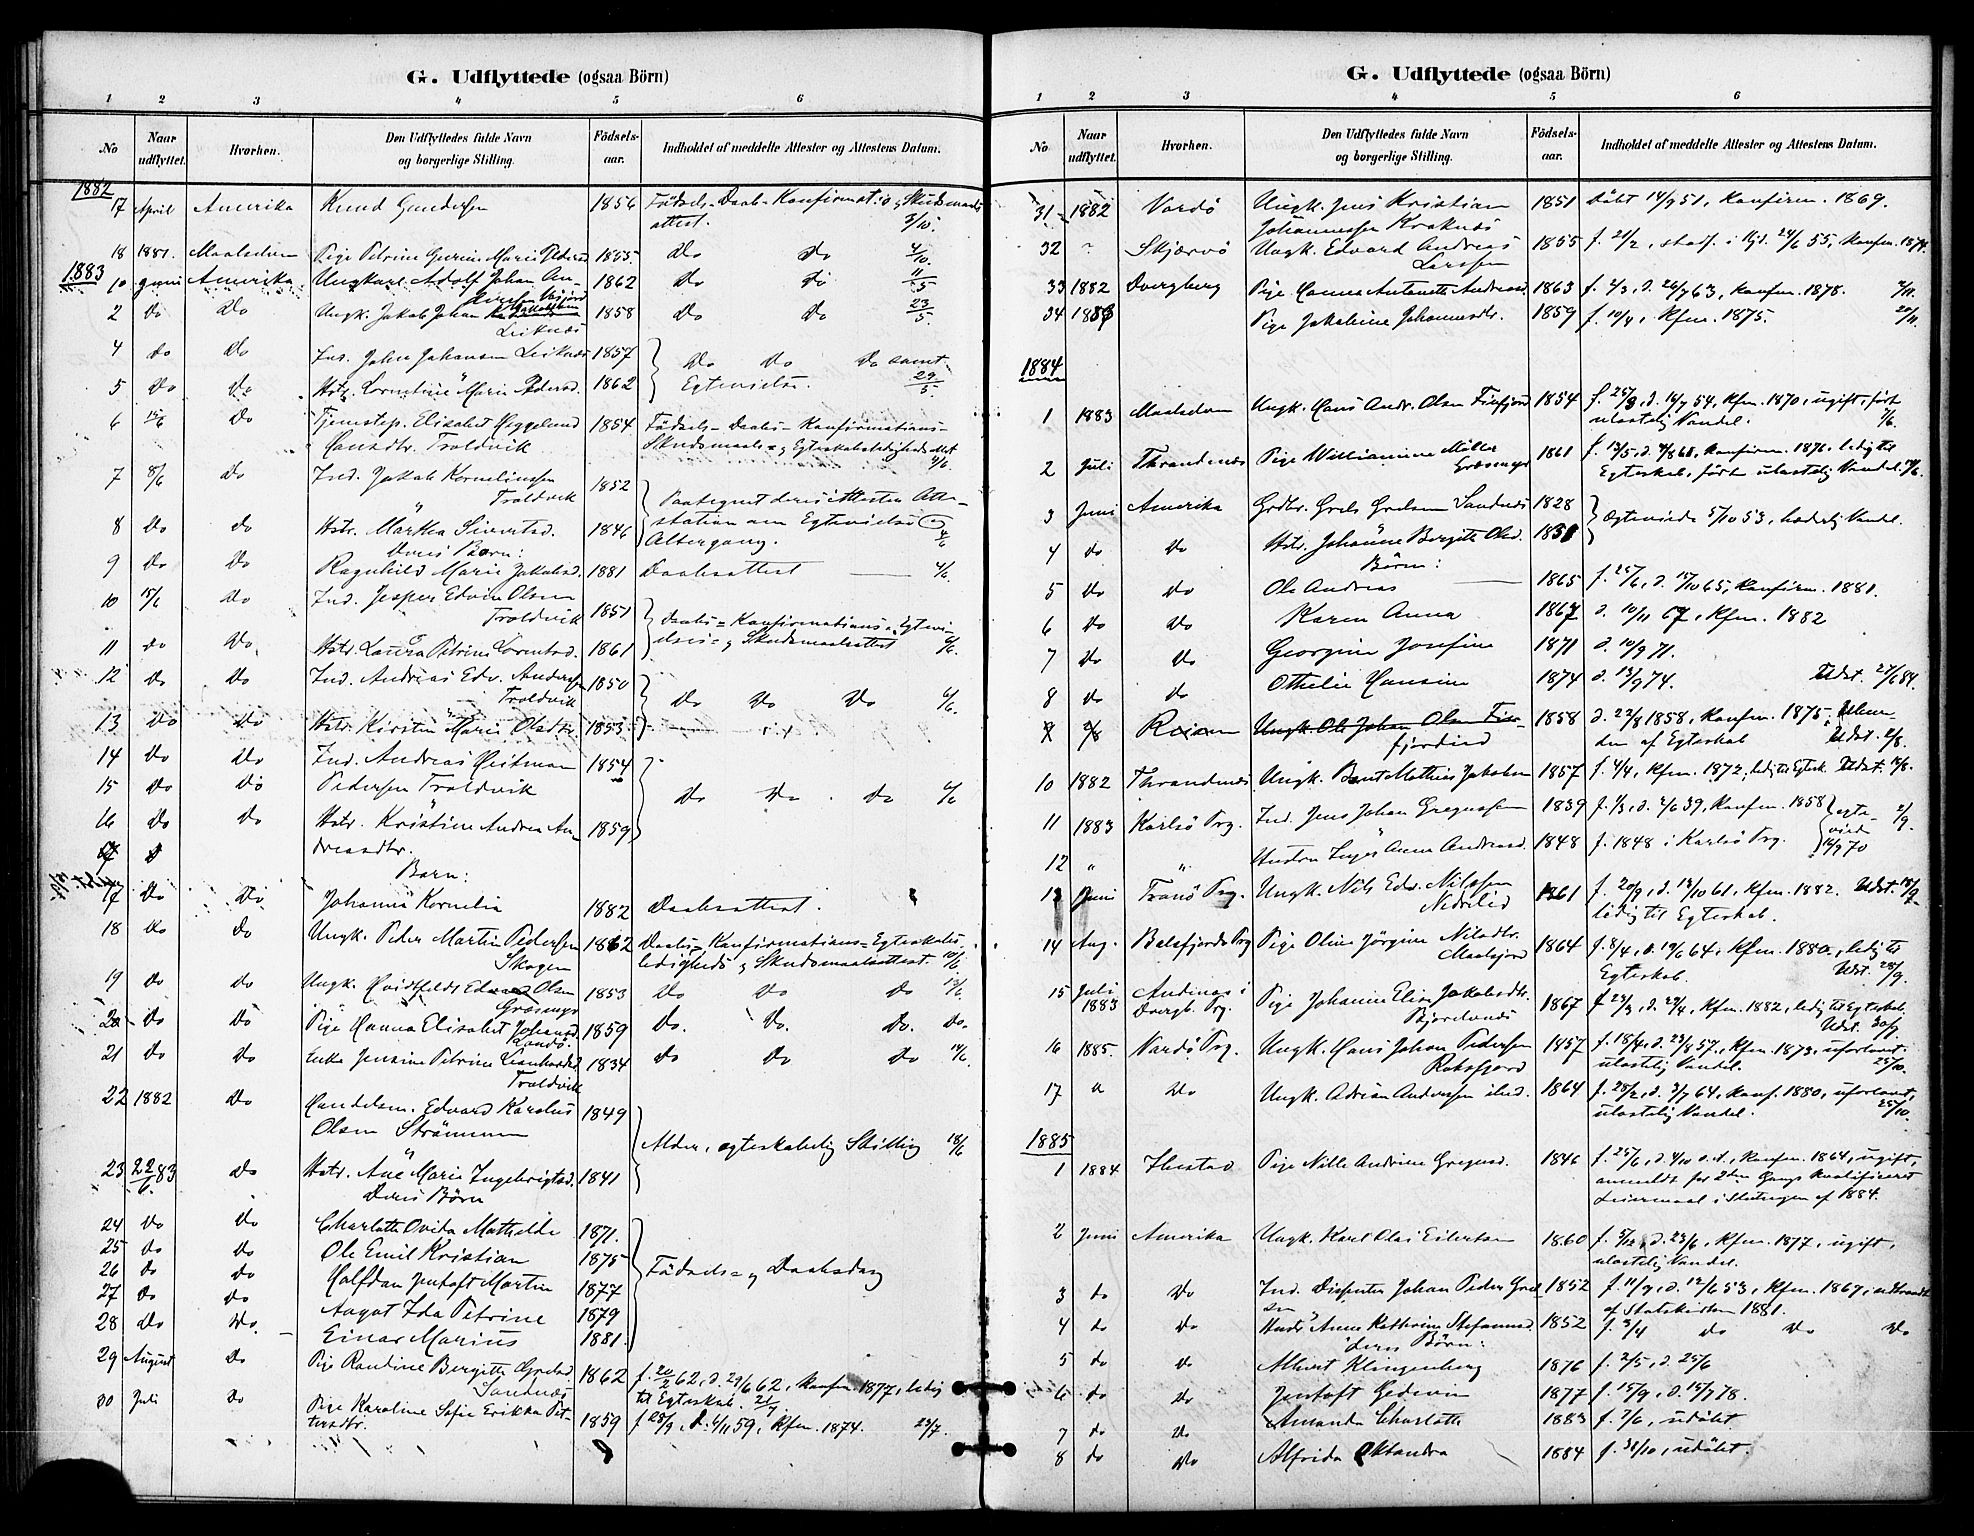 G. Udflyttede (ogsaa Börn)
1 2 3 4 5 6
No
Naar udflyttet.
Hvorhen.
Den Udflyttedes fulde Navn
og borgerlige Stilling.
Födsels-
aar.
Indholdet af meddelte Attester og Attestens Datum.
1882
17 April Amerika Knud Gundersen 1856 Födsels-Daab-Konfirmat.s og Skudsmaals
attest. 3/10.
18 1881. Maalselven Pige Petrine Marie 1855 Do Do 4/10.
1883
10 Juni Amerika Ungkarl Adolf Johan An- 1862 Do Do 11/5
2 Do Do Ungk. Jakob Johan 1858 Do Do 23/5.
Leiknæs
4 Do Do Ind. John Johansen Leiknæs 1857 Do Do Do samt
5 Do Do Hstr. Marie Pedersd. 1862 Egtevielse. 29/5
6 15/6 Do Tjenestep. Elisabet Heggelund 1854 Födsels- Daabs- Konfirmations-
Hansdtr. Troldvik Skudsmaals- og Egteskabsledigheds Attest
7 8/6 do Ind. Jakob Kornelinssen 1852
Troldvik Paategnet deres Attester Atte-
8 Do do Hstr. Martha Sivertsd. 1846 station om Egtevielse
Deres Børn: Altergang.
9 Do Do Ragnhild Marie Jakobsd. 1881 Daabsattest 4/6.
10 15/6 Do Ind. Jesper Edvin Olsen 1851
Troldvik Daabs- Konfirmations- Egtevi-
11 do Do. Hstr. Laura Petrine 1861 elses- og Skudsmaalsattest 6/6.
12 Do Do Ind. Andreas Edv. Andersen 1850
Troldvik Do Do Do 6/6.
13 Do Do Hstr. Kirsten Marie Olsdtr. 1853
14 Do Do Ind. Andreas Heitman 1854
15 Do Do Pedersen Troldvik Do Do Do 6/6
16 Do Do Hstr. Kristine Andrea An- 1859
dreasdtr.
Børn:
17 Do Do Johanna Kornelia 1882 Daabsattest.
18 Do do Ungk. Peder Martin Pedersen 1862 Daabs- Konfirmations- Egteskabs-
Skogen ledigheds og Skudsmaalsattest. 10/6.
19 do do Ungk. Hvidtfeldt Olsen 1853 Do Do Do 13/6.
Græsmyr
20 Do Do Pige Hanna Elisabet Johansd. 1859 Do. Do. Do. Do.
21 Do Do Enke Jensine Petrine 1834 Do Do Do 14/6.
Troldvik
22 1882 Do Handelsm. Edvard Karolus 1849
Olsen Strömmen Alder, egteskabelig Stilling 18/6
23 22/6. 83 do Hstr. Ane Marie Ingebrigtsd. 1841
Deres Börn
24 Do Do Charlotte Ovida Mathilde 1871.
25 do Do Ole Emil Kristian 1875
26 Do do Halfdan Jentoft Martin 1877 Födsels- og Daabsdag
27 Do do Aagot Ida Petrine 1879
28 Do Do. Einar Marius 1881.
29 August do Pige Bergitte 1862 f. 20/2 62, d. 29/6 62, konfm. 1877, ledig
Sandnæs til Egteskab.
30 Juli do Pige Karoline Sofie Erikka Pet- 1859 f. 28/9, D. 6/11 59, Kfm. 1874. 23/7.
tersdtr.
G. Udflyttede (ogsaa Börn)
1 2 3 4 5 6
No
Naar udflyttet.
Hvorhen.
Den Udflyttedes fulde Navn
og borgerlige Stilling.
Födsels-
aar.
Indholdet af meddelte Attester og Attestens Datum.
31 1882 Vardö Ungk. Jens Kristian 1851 Döbt 14/9 51, Konfirm. 1869.
Johannessen Kraknæs
32 Skjærvö Ungk. Edvard Andreas 1855 f. 21/2, 24/6 55, Konfm. 1874.
Larssen
33 1882 Dverberg Pige Hanna Antonette 1863 f. 4/3, d. 26/7 63, Konfm. 1878.
34 1883 Pige Jakobine Johannesdtr. 1859 f. 10/4, Kfm. 1875.
1884
1 1883 Maalselven Ungk. Hans Andr. Olsen Finfjord 1854 f. 25/3, d. 16/7 54, Kfm. 1870, ugift, fört
ulastelig Vandel.
2 Juli Throndenæs Pige Willianine Möller 1861 f. 13/5, Konfirm. 1876, ledig til
Græsmyr Egteskab, fört ulastelig Vandel.
3 Juni Amerika Grdbr. Grels Grelsen Sandnæs 1828 Egteviede 5/10 53, hæderlig Vandel.
4 do Do Hstr. Johanne Bergitte Olsd. 1831
Börn:
5 do do Ole Andreas 1865 f. 25/6, d. 15/10 65, Konfirm. 1881.
6 do do Karen Anna 1867 d. 10/11 67, Kfm. 1882
7 do do Georgine Josefine 1871 d. 10/9 71.
8 do do Othelie Hansine 1874 d. 13/9 74. Udst. 27/6 84.
9 Ungk. Ole Johan Olsen Fin- 1858 d. 22/8 1858, konfm. 1875,
fjordeid den af Egteskab Udst. 2/8.
10 1882 Throndenæs Ungk. Bernt Mathias Jakobsen 1857 f. 4/4, Kfm. 1872, ledig til Egtesk. Udst.
11 1883 Karlsö Prg. Ind. Jens Johan Gregussen 1839 f. 1/3, d. 2/6 39, Konfm. 1858 egte-
viede
12 " " Hustru Inger Anna Andreasd. 1848 f. 1848 i Karlsö Prg. 70
13 Juni Tranö Prg. Ungk. Nils Edv. Nilssen 1861 f. 20/9, d. 13/10 61, Kfm. 1882. Udst.
ledig til Egteskab.
14 Aug. Balsfjords Prg Pige Oline Jörgine Nilsdtr. 1864 f. 8/4, d. 19/6 64, Kfm. 1880, ledig til
Egteskab. Udst. 28/9.
15 Juli 1883 Andenæs i Dvergb. Prg. Pige Johanna Elise Jakobsdtr. 1867 f 23/3, d. 29/4, Kfm. 1882, ledig til Egteskab.
Bjorelvnæs Udst. 30/9.
16 1885. Vardö Prg. Ungk. Hans Johan Pedersen 1857 f. 18/4, d. 23/8 57, Kfm. 1873, uforlovet.
ulastelig Vandel. 25/10.
17 " Do Ungk. Adrian Andersen ibid. 1864 f. 28/2, d. 3/7 64, konf. 1880, uforlovet,
ulastelig Vandel. 25/10.
1885
1 1884 Ibestad Pige Nille Andrine Gregusd. 1846 f. 25/6, d. 4/10 s. d., Konfm. 1864, ugift,
anmeldt for 2den Gangs kvalificeret
Leiermaal i Slutningen af 1884.
2 Juni Amerika Ungk. Karl Olai Eilertsen 1860 f. 5/2, d. 23/6, Kfm. 1877, ugift,
ulastelig Vandel.
3 do Do Ind. Dissenter Johan Peder 1852 f. 11/9, d. 12/6 53, Kfm. 1867, udtraadt
af Statskirken 1881.
4 do do Hustr Anne Kathrine Stefansd. 1852 f. 3/4 do Do Do
deres Börn:
5 do do Albert Klingenberg 1876 f. 2/5, d. 25/6
6 do do Jentoft Gedeon 1877 f. 15/9, d. 15/9 78.
7 do do Amanda Charlotte 1883 f. 2/6, udöbt.
8 do Do Alfrida Oktandra 1884 f. 31/10, udöbt.